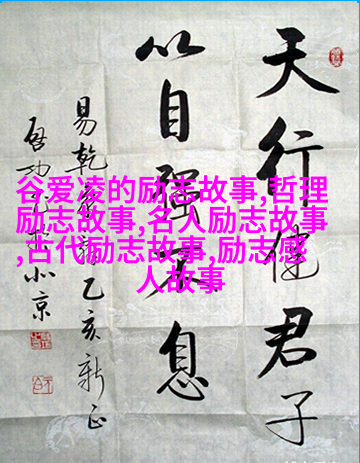 天行健君子
以自強不息
易乾 乙亥新正
啟功 北京
谷爱凌的励志故事,哲理
励志故事,名人励志故事
,古代励志故事,励志感
人故事